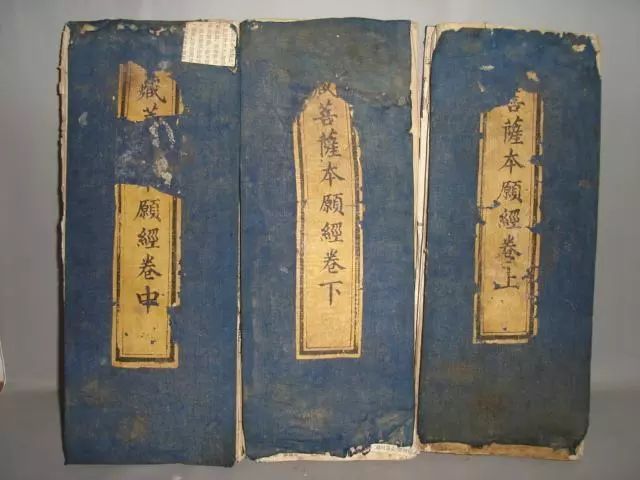 藏菩
本願經卷中
藏菩薩本願經卷下
菩薩本願經卷上